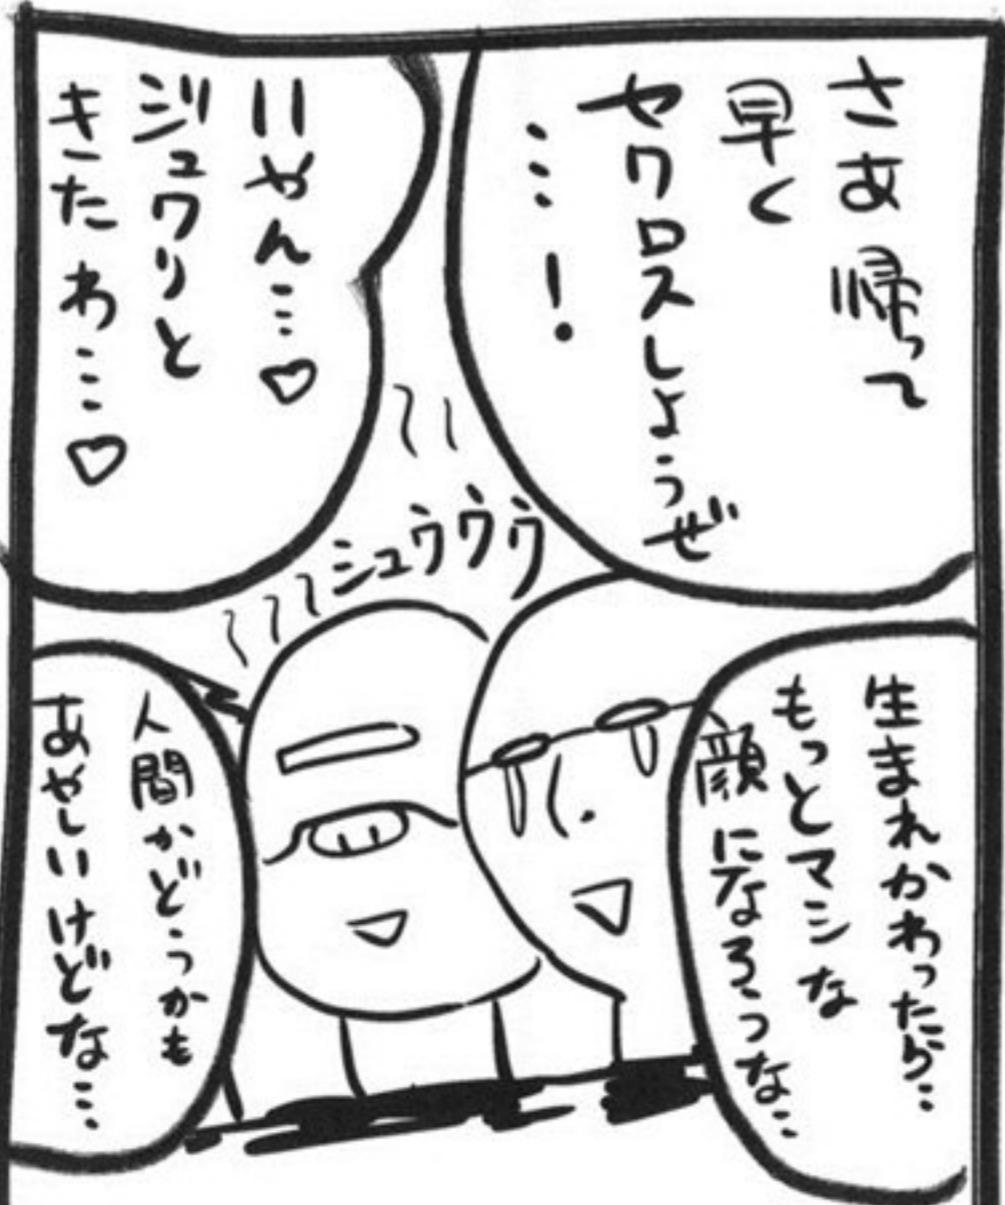 さあ帰って
早く
セクロスしようぜ
…！
いやん…♡
ジュワリと
きたわ…♡
シュウウウ
生まれかわったら…
もっとマシな
顔になろうな…
人間かどうかも
あやしいけどな…